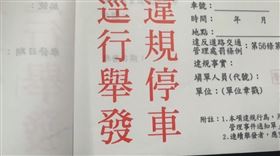 違規停車
逕行舉發
車號：
時間：　年　月
地點：
違反道路交通
管理處罰條例
：第56條第
違規事實：
填單人員(代號)：
單位：(單位章戳)
附註：1.本項違規行為，
管理事件通知單
2.連續舉發者，應